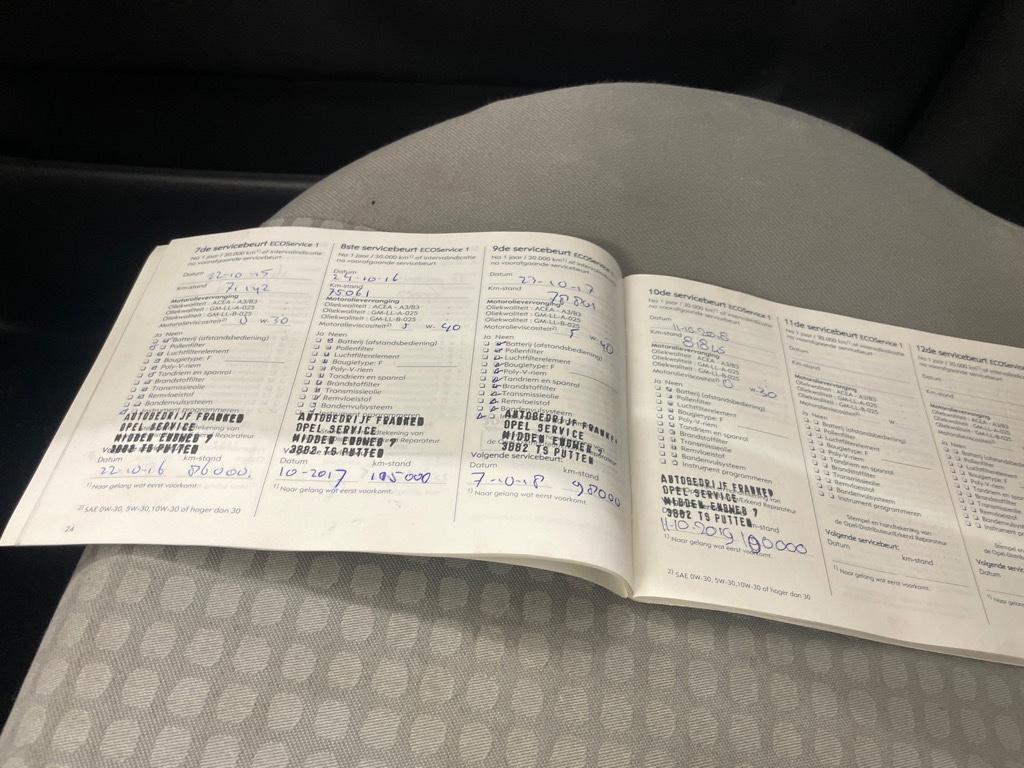 7de servicebeurt ECOService 1
Na 1 jaar / 30.000 km¹⁾ of intervalindicatie
na voorafgaande servicebeurt
Datum 22-10-15
Km-stand 71142
Motorolievervanging
Oliekwaliteit : ACEA - A3/B3
Oliekwaliteit : GM-LL-A-025
Oliekwaliteit : GM-LL-B-025
Motorolieviscositeit²⁾ 0 w- 30
Ja Neen
Batterij (afstandsbediening)
Pollenfilter
Luchtfilterelement
Bougietype: F
Poly-V-riem
Tandriem en spanrol
Brandstoffilter
Transmissieolie
Remvloeistof
Bandenvulsysteem
AUTOBEDRIJF FRANKEN
OPEL SERVICE
MIDDEN ENGWEG 7
3882 TS PUTTEN
Datum km-stand
22-10-16 86000
¹⁾ Naar gelang wat eerst voorkomt.
²⁾ SAE 0W-30, 5W-30,10W-30 of hoger dan 30
24
8ste servicebeurt ECOService 1
Na 1 jaar / 30.000 km¹⁾ of intervalindicatie
na voorafgaande servicebeurt
Datum
24-10-16
Km-stand
75061
Motorolievervanging
Oliekwaliteit : ACEA - A3/B3
Oliekwaliteit : GM-LL-A-025
Oliekwaliteit : GM-LL-B-025
Motorolieviscositeit²⁾ 5 w- 40
Ja Neen
Batterij (afstandsbediening)
Pollenfilter
Luchtfilterelement
Bougietype: F
Poly-V-riem
Tandriem en spanrol
Brandstoffilter
Transmissieolie
Remvloeistof
Bandenvulsysteem
AUTOBEDRIJF FRANKEN
OPEL SERVICE
MIDDEN ENGWEG 7
3882 TS PUTTEN
Datum km-stand
10-2017 105000
¹⁾ Naar gelang wat eerst voorkomt.
9de servicebeurt ECOService 1
Na 1 jaar / 30.000 km¹⁾ of intervalindicatie
na voorafgaande servicebeurt
Datum 27-10-17
Km-stand 78801
Motorolievervanging
Oliekwaliteit : ACEA - A3/B3
Oliekwaliteit : GM-LL-A-025
Oliekwaliteit : GM-LL-B-025
Motorolieviscositeit²⁾ 5 w- 40
Ja Neen
Batterij (afstandsbediening)
Pollenfilter
Luchtfilterelement
Bougietype: F
Poly-V-riem
Tandriem en spanrol
Brandstoffilter
Transmissieolie
Remvloeistof
Bandenvulsysteem
AUTOBEDRIJF FRANKEN
OPEL SERVICE
MIDDEN ENGWEG 7
3882 TS PUTTEN
Volgende servicebeurt:
Datum km-stand
7-10-18 98000
¹⁾ Naar gelang wat eerst voorkomt.
10de servicebeurt ECOService 1
Na 1 jaar / 30.000 km¹⁾ of intervalindicatie
na voorafgaande servicebeurt
Datum 11-10-2018
Km-stand
Motorolievervanging
Oliekwaliteit : ACEA - A3/B3
Oliekwaliteit : GM-LL-A-025
Oliekwaliteit : GM-LL-B-025
Motorolieviscositeit²⁾ 0 w- 30
Ja Neen
Batterij (afstandsbediening)
Pollenfilter
Luchtfilterelement
Bougietype: F
Poly-V-riem
Tandriem en spanrol
Brandstoffilter
Transmissieolie
Remvloeistof
Bandenvulsysteem
Instrument programmeren
AUTOBEDRIJF FRANKEN
OPEL SERVICE
MIDDEN ENGWEG 7
3882 TS PUTTEN
11-10-2019 100000
¹⁾ Naar gelang wat eerst voorkomt.
²⁾ SAE 0W-30, 5W-30,10W-30 of hoger dan 30
11de servicebeurt ECOService 1
Na 1 jaar / 30.000 km¹⁾ of intervalindicatie
na voorafgaande servicebeurt
Datum
Km-stand
Motorolievervanging
Oliekwaliteit : ACEA - A3/B3
Oliekwaliteit : GM-LL-A-025
Oliekwaliteit : GM-LL-B-025
Motorolieviscositeit²⁾
Ja Neen
Batterij (afstandsbediening)
Pollenfilter
Luchtfilterelement
Bougietype: F
Poly-V-riem
Tandriem en spanrol
Brandstoffilter
Transmissieolie
Remvloeistof
Bandenvulsysteem
Instrument programmeren
Stempel en handtekening van
de Opel-Distributeur/Erkend Reparateur
Volgende servicebeurt:
Datum km-stand
¹⁾ Naar gelang wat eerst voorkomt.
12de servicebeurt
Datum
Km-stand
Motorolievervanging
Ja Neen
Volgende
Datum